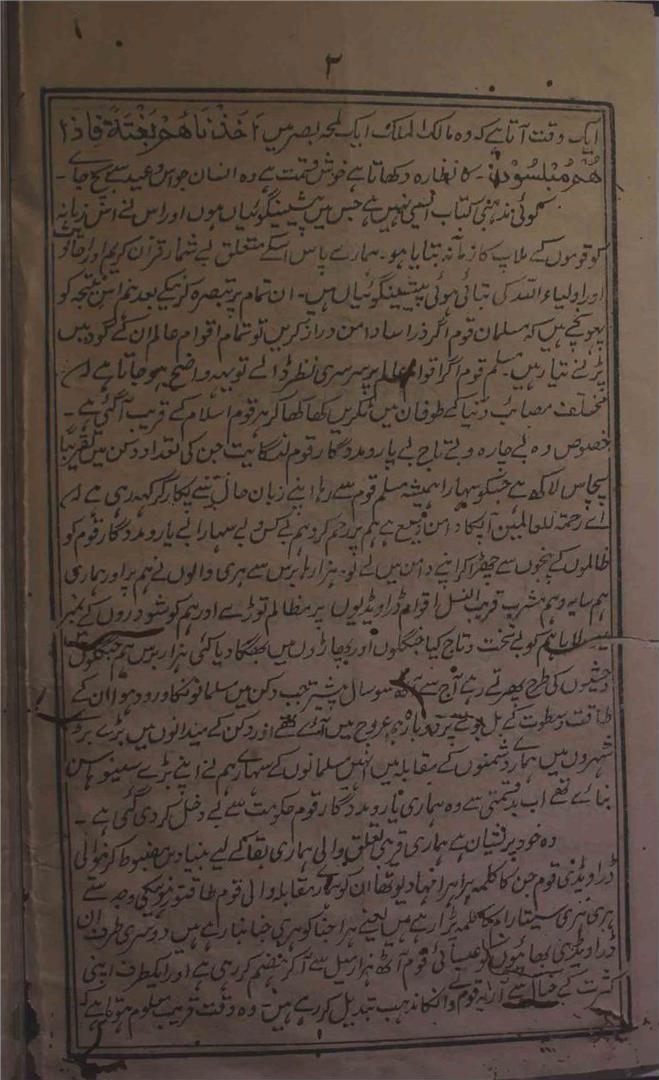 ۲
ایک وقت آتا ہے کہ وہ مالک الملک ایک لمحہ بصر میں اَخَذْنَاهُمْ بَغْتَةً فَاِذَا
هُمْ مُبْلِسُوْنَ۔ کا نظارہ دکھاتا ہے خوش قسمت ہے وہ انسان جو اس وعید سے بچ جائے۔
کوئی مذہبی کتاب ایسی نہیں ہے جس میں پیشینگوئیاں نہوں اور اس نے اس زمانہ
کو قوموں کے ملاپ کا زمانہ نہ بتایا ہو۔ ہمارے پاس اسکے متعلق بے شمار قرآن کریم اور احادیث
اور اولیاء اللہ کی بتائی ہوئی پیشینگوئیاں ہیں۔ ان تمام پر تبصرہ کرنیکے بعد ہم اس نتیجہ کو
پہونچے ہیں کہ مسلمان قوم اگر ذرا سا دامن دراز کریں تو تمام اقوام عالم ان کے گود میں
پڑنے تیار ہیں۔ مسلم قوم اگر اقوام عالم پر سرسری نظر ڈالے تو یہہ واضح ہو جاتا ہے کہ
مختلف مصائب دنیا کے طوفان میں ٹکریں کھا کھا کر ہر قوم اسلام کے قریب آگئی ہے۔
خصوص وہ بے چارہ و بے تاج بے یار و مددگار قوم لنگایت جن کی تعداد دکن میں تقریباً
پچاس لاکھ ہے جنکو سہارا ہمیشہ مسلم قوم سے رہا اپنے زبان حال سے پکار کر کہہ رہی ہے کہ
اے رحمۃ للعالمین آپکا دامن وسیع ہے ہم پر رحم کرو ہم بے کس و بے سہارا بے یار و مددگار قوم کو
ظالموں کے پنجوں سے چھڑا کر اپنے دامن میں لے لو۔ ہزارہا برس سے ہری والوں نے ہم پر اور ہماری
ہم سایہ و ہم مشرب قریب النسل اقوام ڈراویڈیوں پر مظالم توڑے اور ہم کو شودروں کے نمبر
لایا ہم کو بے تخت و تاج کیا جنگلوں اور پہاڑوں میں بھگا دیا کئی ہزار برس ہم جنگلوں
وحشیوں کی طرح پھرتے رہے آج سے سو سال پیشتر جب دکن میں مسلمانونکا ورود ہوا ان کے
طاقت و سطوت کے بل بوتے پر دوبارہ ہم عروج میں آئے تھے اور دکن کے میدانوں میں بڑے بڑے
شہروں میں ہمارے دشمنوں کے مقابلہ میں انہیں مسلمانوں کے سہارے ہم نے اپنے بڑے
بنائے تھے اب بدقسمتی سے وہ ہماری یار و مددگار قوم حکومت سے بے دخل کر دی گئی ہے۔
وہ خود پریشان ہے ہماری قریبی تعلق والی ہماری بقا کے لیے بنیادیں مضبوط کرنیوالی
ڈراویڈی قوم جن کا کلمہ ہراہرا مہادیو تھا ان کو ہمارے مقابلہ والی قوم طاقتور ہونیکی وجہ سے
ہری ہری سیتا رام کا کلمہ پڑا رہے ہیں یعنے ہراجنا کو ہری جنا بنا رہے ہیں دوسری طرف ان
ڈراویڈی بھائیوں کو عیسائی قوم آٹھ ہزار میل سے آکر ہضم کر رہی ہے اور ایکطرف اپنی
کثرت کے خیال سے آریہ قوم انکا مذہب تبدیل کر رہے ہیں۔ وہ وقت قریب معلوم ہوتا ہے کہ